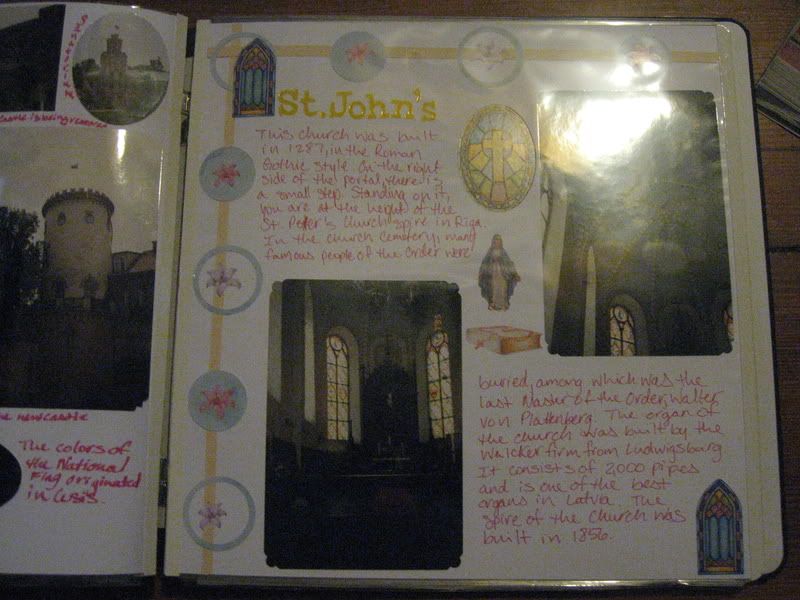 castle is being
the new castle
The colors of
the National
Flag originated
in Cesis.
St. John's
This church was built
in 1287, in the Roman
Gothic style. On the right
side of the portal, there is
a small step. Standing on it,
you are at the height of the
St. Peter's Church spire in Riga.
In the church cemetery, many
famous people of the Order were
buried, among which was the
last Master of the Order, Walter
von Plattenberg. The organ of
the church was built by the
Walcker firm from Ludwigsburg.
It consists of 2,000 pipes
and is one of the best
organs in Latvia. The
spire of the church was
built in 1856.